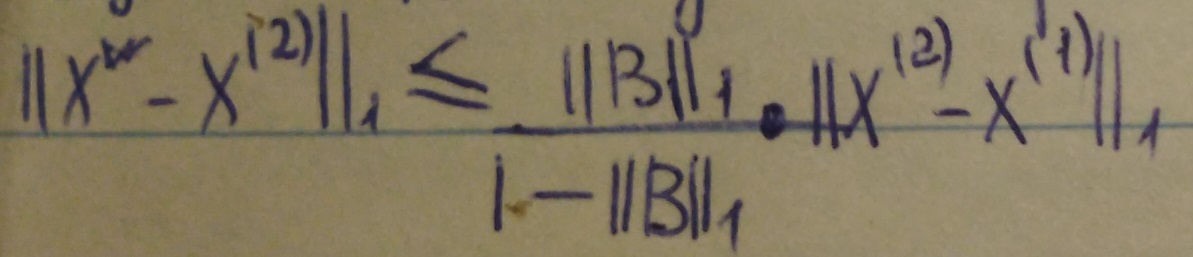 ‖X* - X⁽²⁾‖₁ ≤ ‖B‖₁ / (1 - ‖B‖₁) • ‖X⁽²⁾ - X⁽¹⁾‖₁